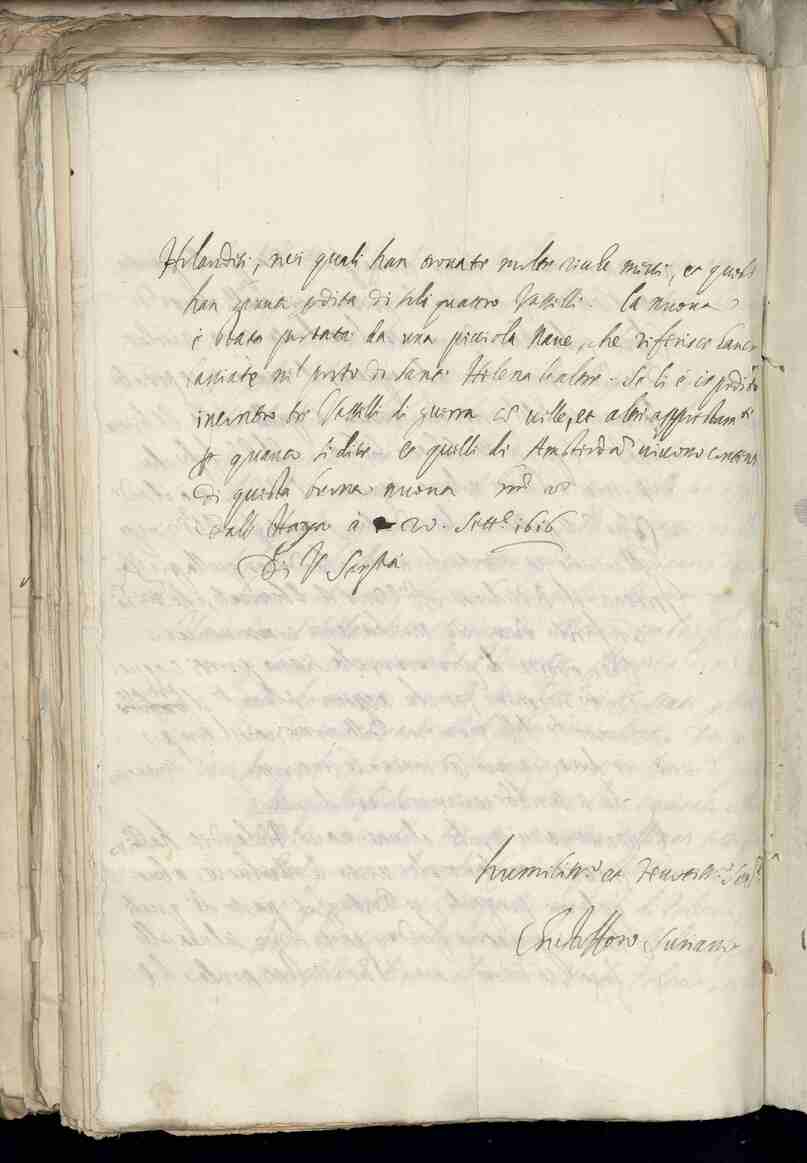 Holandesi, nei quali han trovate molte riche merci, et questi
han havuta perdita di soli quattro Vasselli. la nuova
è stata portata da una picciola Nave, che riferisce haver
lasciate nel porto di Sant' Helena le altre. Se li è ispedito
incontro tre Vasselli di guerra con vitto, et altri
per quanto si dice et quelli di Amsterdam vivono contenti
di questa buona nuova
Dall' Haya à 20. Sett.e 1616
Di V. Ser.tà
humiliss.o et devotiss.o ser.re
Christofforo Suriano